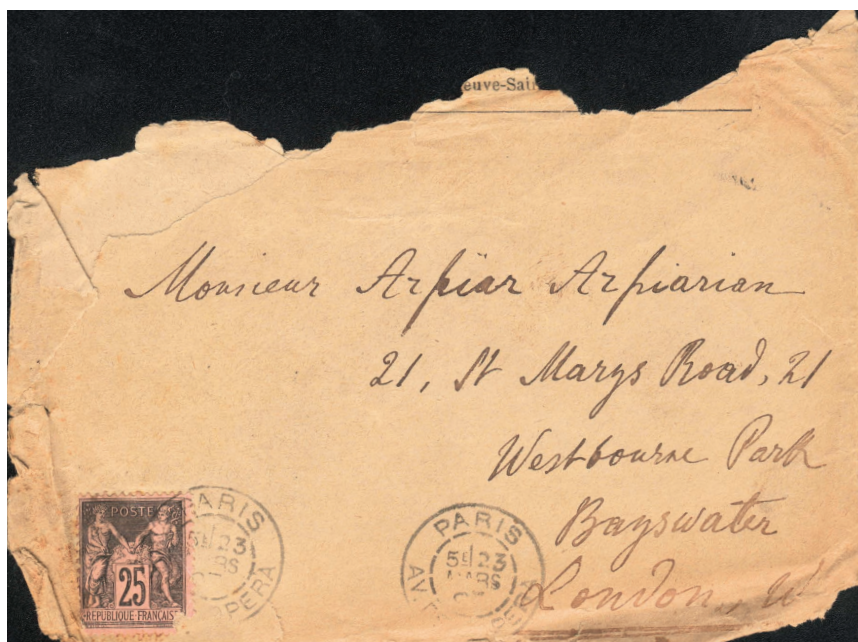 euve-Sai
Monsieur Arpiar Arpiarian
21, St Marys Road, 21
Westbourne Park
Bayswater
London, W
POSTE
25
REPUBLIQUE FRANÇAISE
PARIS
23
MARS
OPERA
PARIS
5E 23
MARS
AV.
OPERA